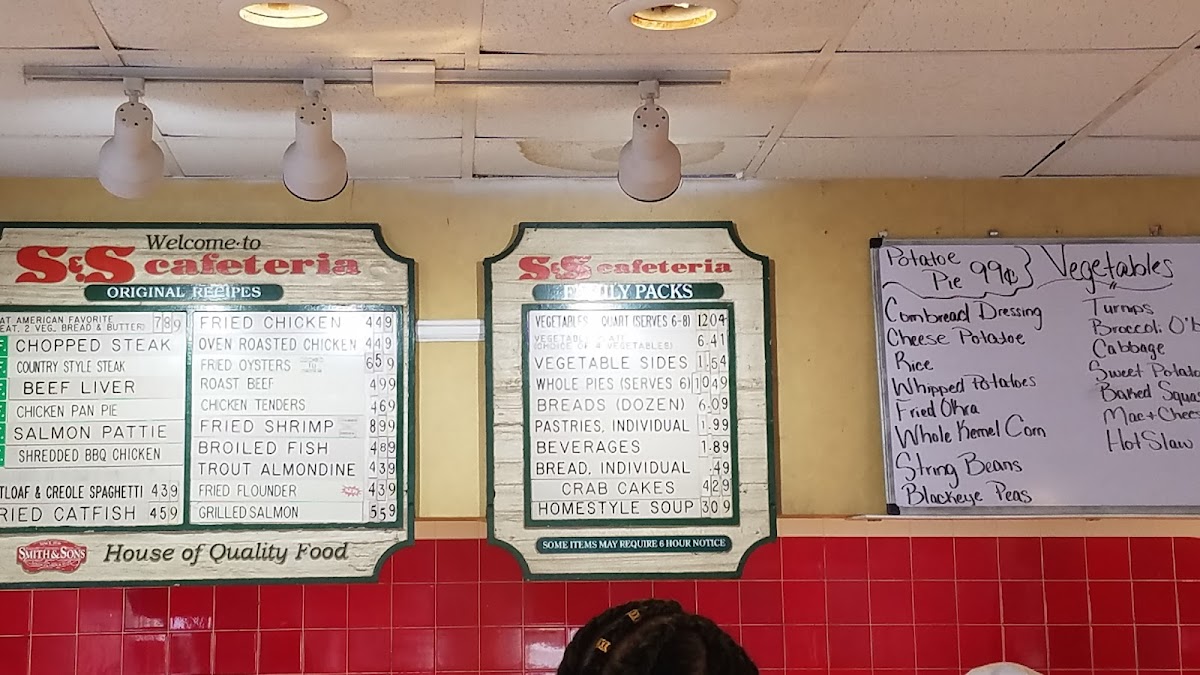 Welcome to
S&S cafeteria
ORIGINAL RECIPES
AT AMERICAN FAVORITE
EAT, 2 VEG, BREAD & BUTTER) 789
CHOPPED STEAK
COUNTRY STYLE STEAK
BEEF LIVER
CHICKEN PAN PIE
SALMON PATTIE
SHREDDED BBQ CHICKEN
TLOAF & CREOLE SPAGHETTI 439
RIED CATFISH 459
FRIED CHICKEN 449
OVEN ROASTED CHICKEN 449
FRIED OYSTERS 659
ROAST BEEF 499
CHICKEN TENDERS 469
FRIED SHRIMP 899
BROILED FISH 489
TROUT ALMONDINE 439
FRIED FLOUNDER 439
GRILLED SALMON 559
SMITH & SONS
House of Quality Food
S&S cafeteria
FAMILY PACKS
VEGETABLES QUART (SERVES 6-8) 1204
VEGETABLE 6.41
(CHOICE OF 4 VEGETABLES)
VEGETABLE SIDES 1.54
WHOLE PIES (SERVES 6) 1049
BREADS (DOZEN) 6.09
PASTRIES, INDIVIDUAL 1.99
BEVERAGES 1.89
BREAD, INDIVIDUAL .49
CRAB CAKES 429
HOMESTYLE SOUP 309
SOME ITEMS MAY REQUIRE 6 HOUR NOTICE
Potatoe
Pie 99¢
Vegetables
Cornbread Dressing
Cheese Potatoe
Rice
Whipped Potatoes
Fried Okra
Whole Kernel Corn
String Beans
Blackeye Peas
Turnips
Broccoli O'
Cabbage
Sweet Potato
Baked Squas
Mac+Chees
Hot Slaw